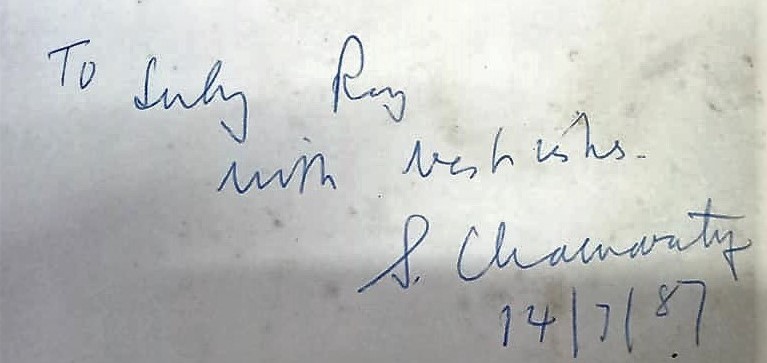 To Ray
with best wishes.
S. Chakravarty
14/7/87